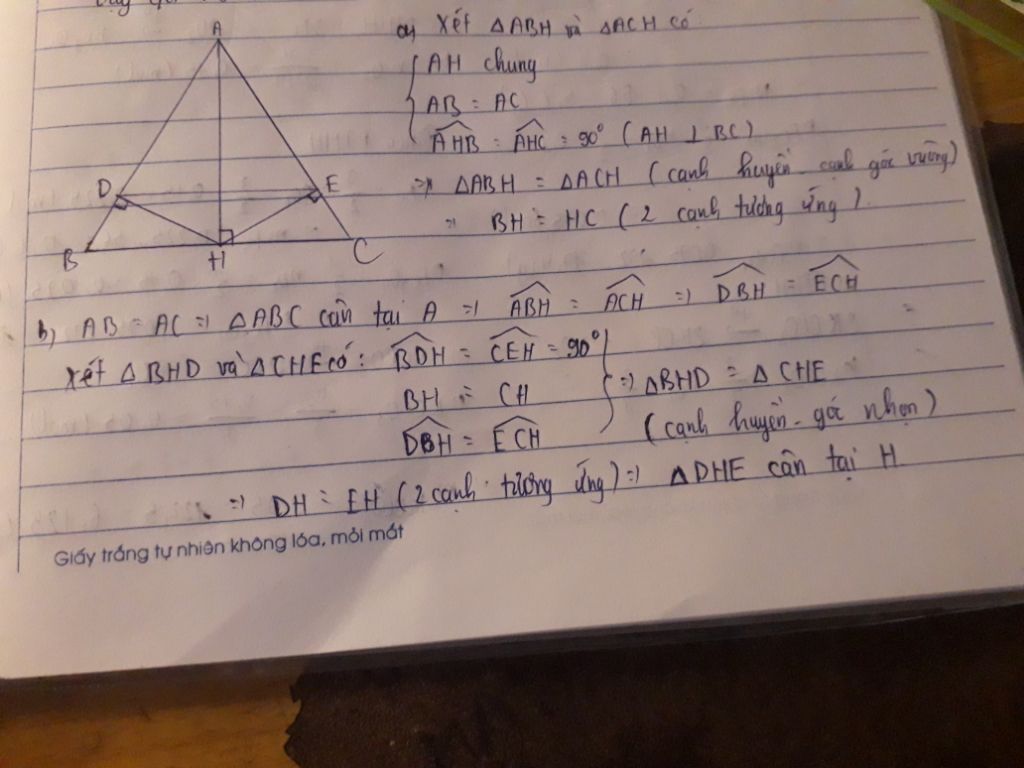 A
a) Xét △ABH và △ACH có
AH chung
AB = AC
AHB = AHC = 90° (AH ⊥ BC)
D
E
=> △ABH = △ACH (cạnh huyền - cạnh góc vuông)
=> BH = HC (2 cạnh tương ứng)
B
H
C
b) AB = AC => △ABC cân tại A => ABH = ACH => DBH = ECH
Xét △BHD và △CHE có: BDH = CEH = 90°
BH = CH
=> △BHD = △CHE
DBH = ECH
(cạnh huyền - góc nhọn)
=> DH = EH (2 cạnh tương ứng) => △DHE cân tại H
Giấy trắng tự nhiên không lóa, mỏi mắt